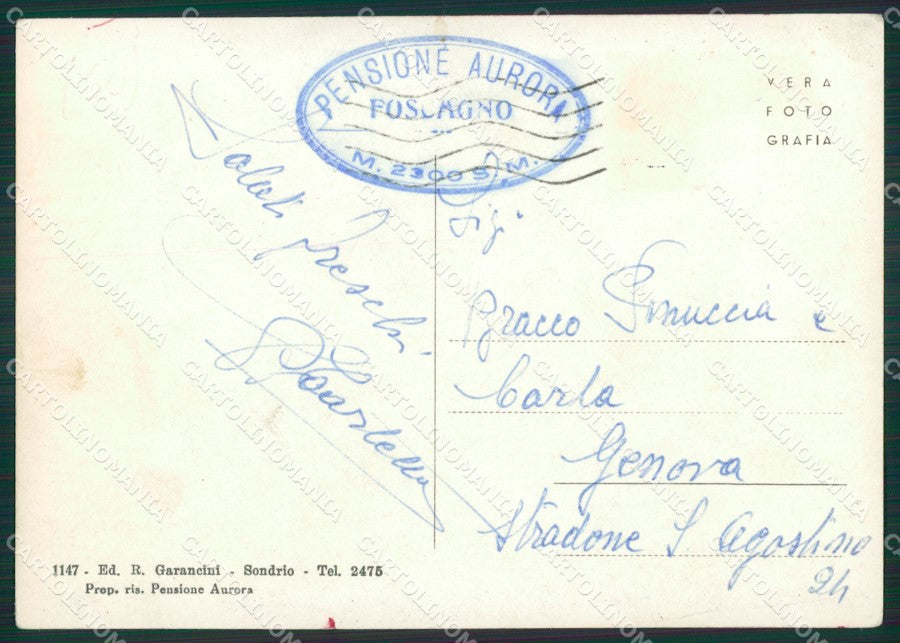 PENSIONE AURORA
FOSCAGNO
M. 2300 S. M.
VERA
FOTO
GRAFIA
Saluti
freschi
Sigi
Bracco Pinuccia e
Carla
Genova
Stradone S. Agostino
24
1147 - Ed. R. Garancini - Sondrio - Tel. 2475
Prop. ris. Pensione Aurora
CARTOLINOMANIA